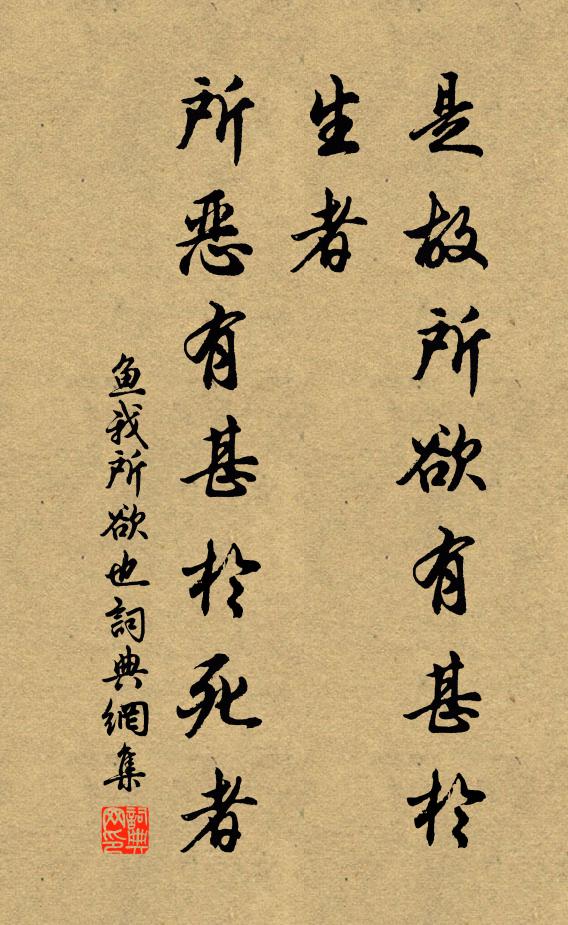 是故所欲有甚於
生者
所惡有甚於死者
魚我所欲也詞典網集
詞典网印